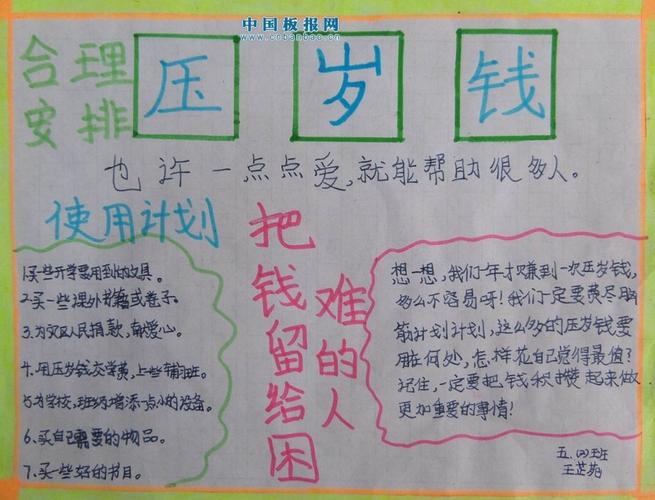 中国板报网
www.ccbanbao.cn
合理
安排
压岁钱
也许一点点爱,就能帮助很多人。
使用计划
1.买一些开学要用到的文具。
2.买一些课外书籍或卷子。
3.为灾区人民捐款,献爱心。
4.用压岁钱交学费,上些辅习班。
5.为学校,班级增添一点小的设备。
6.买自己需要的物品。
7.买一些好的书目。
把钱留给困
难的人
想一想,我们一年才赚到一次压岁钱,
多么不容易呀!我们一定要费尽脑
筋计划计划,这么多的压岁钱要
用在何处,怎样花自己觉得最值?
记住,一定要把钱积攒起来做
更加重要的事情!
五.(2)班
王芷苑